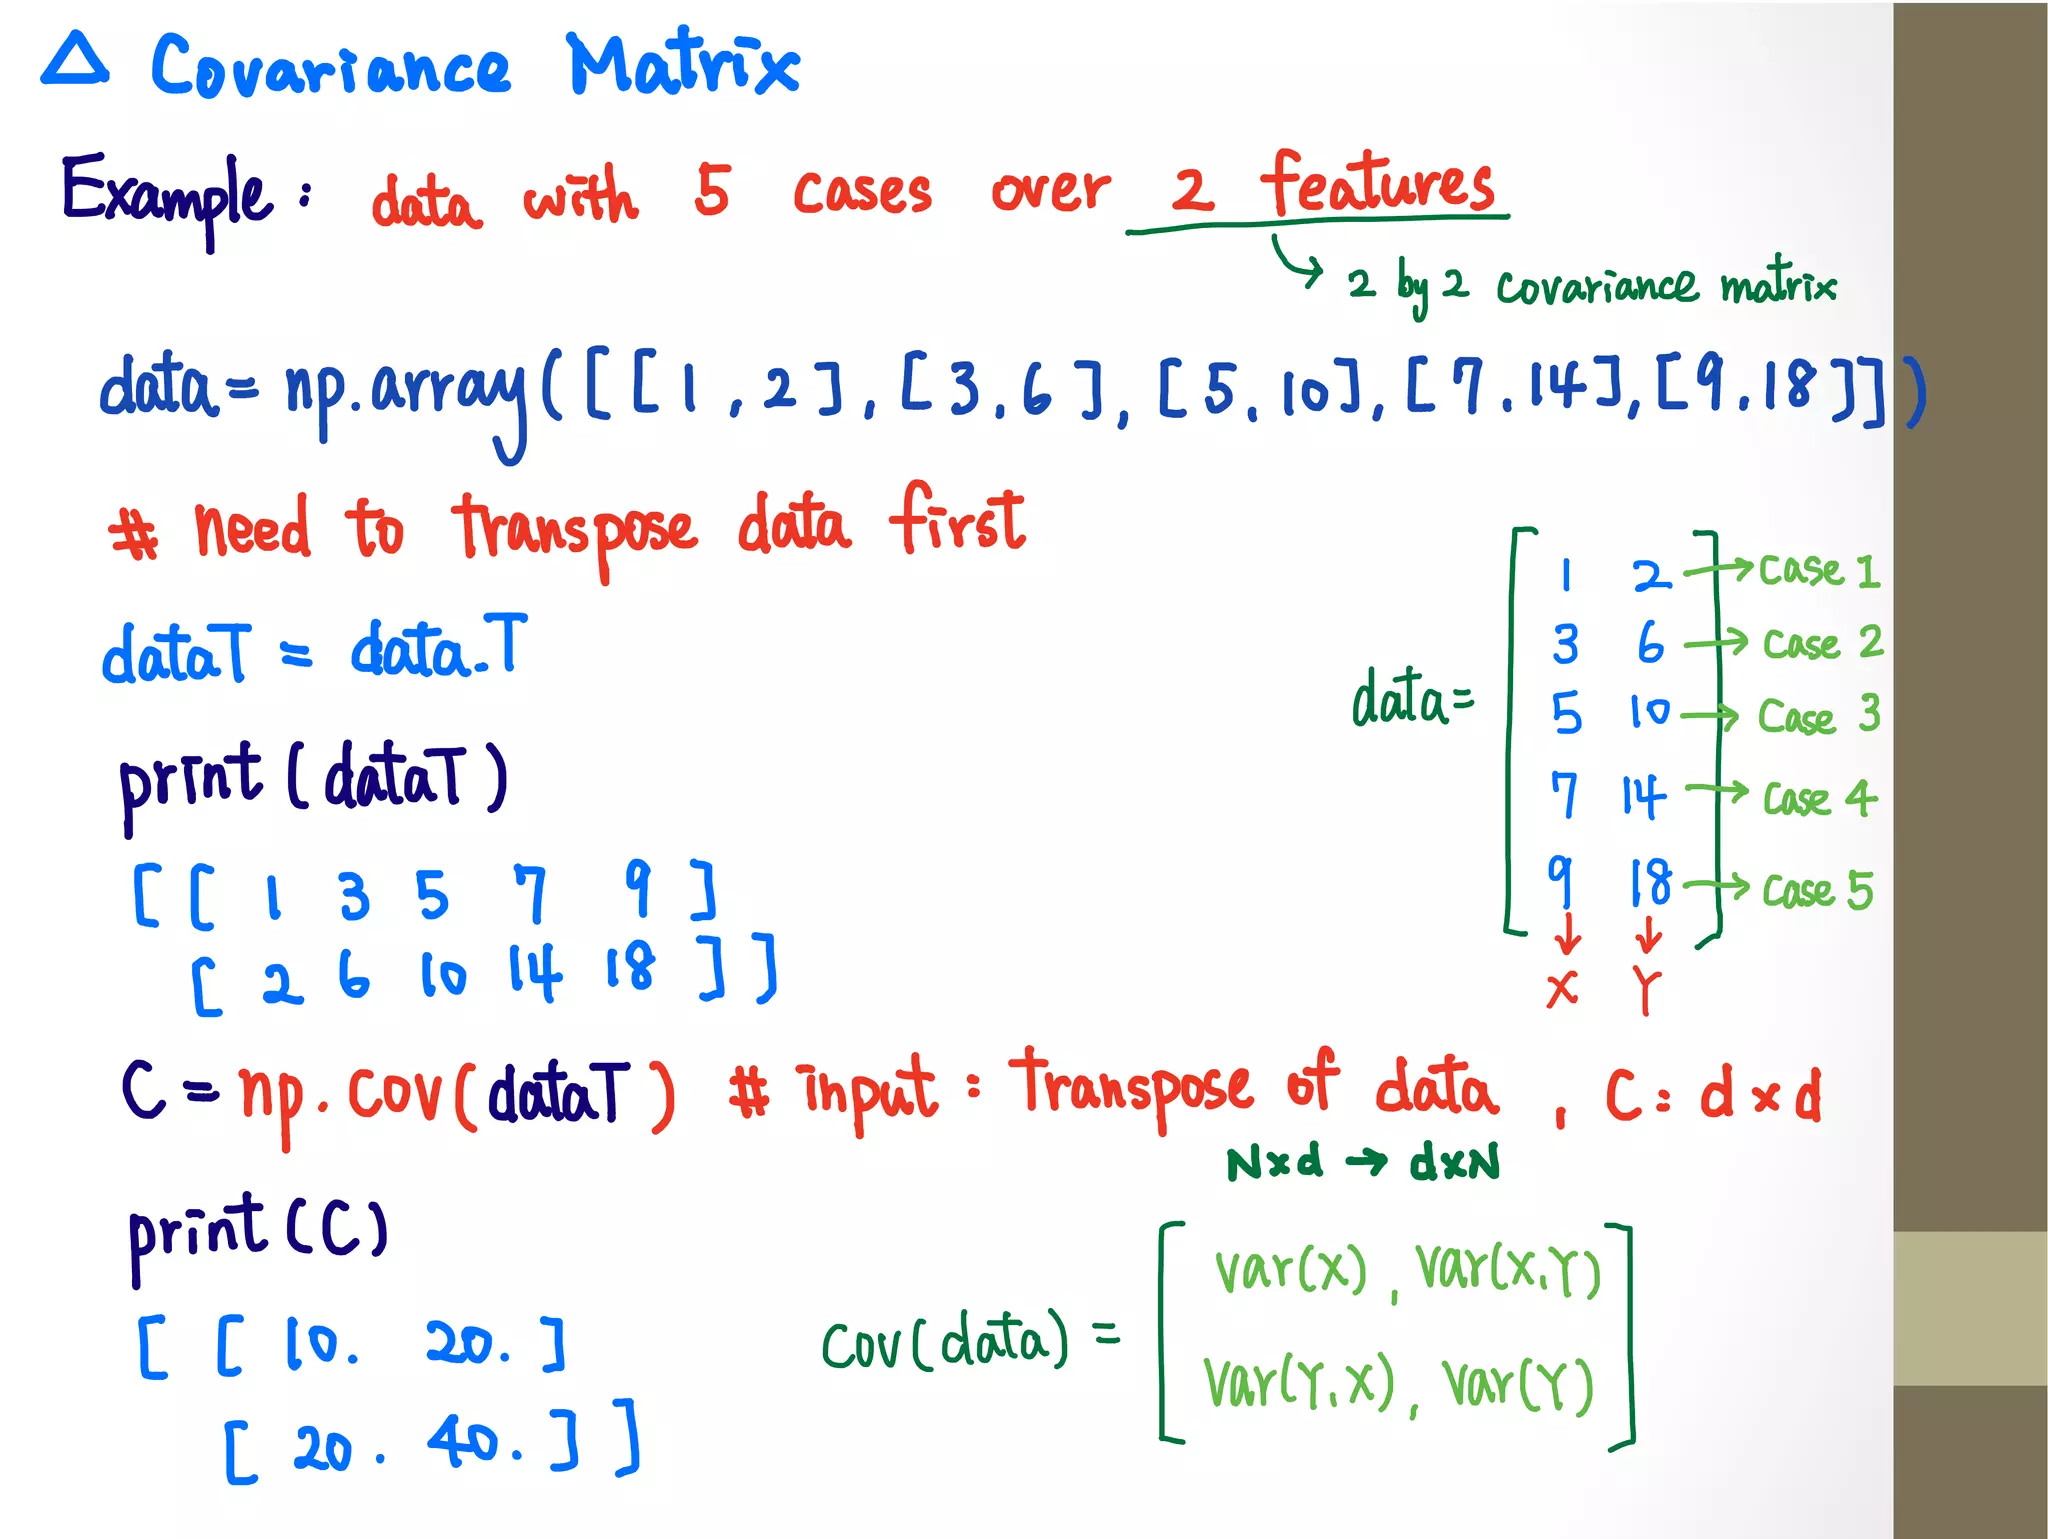 △ Covariance Matrix
Example: data with 5 cases over 2 features
2 by 2 covariance matrix
data= np.array([[1,2],[3,6],[5,10],[7,14],[9,18]])
# need to transpose data first
dataT = data.T
print(dataT)
[[ 1 3 5 7 9 ]
[ 2 6 10 14 18 ]]
data=
1 2 → case 1
3 6 → case 2
5 10 → case 3
7 14 → case 4
9 18 → case 5
↓ ↓
X Y
C = np.cov(dataT) # input: Transpose of data, C: d×d
N×d → d×N
print(C)
[[ 10. 20. ]
[ 20. 40. ]]
cov(data) =
var(X), var(X,Y)
var(Y,X), var(Y)